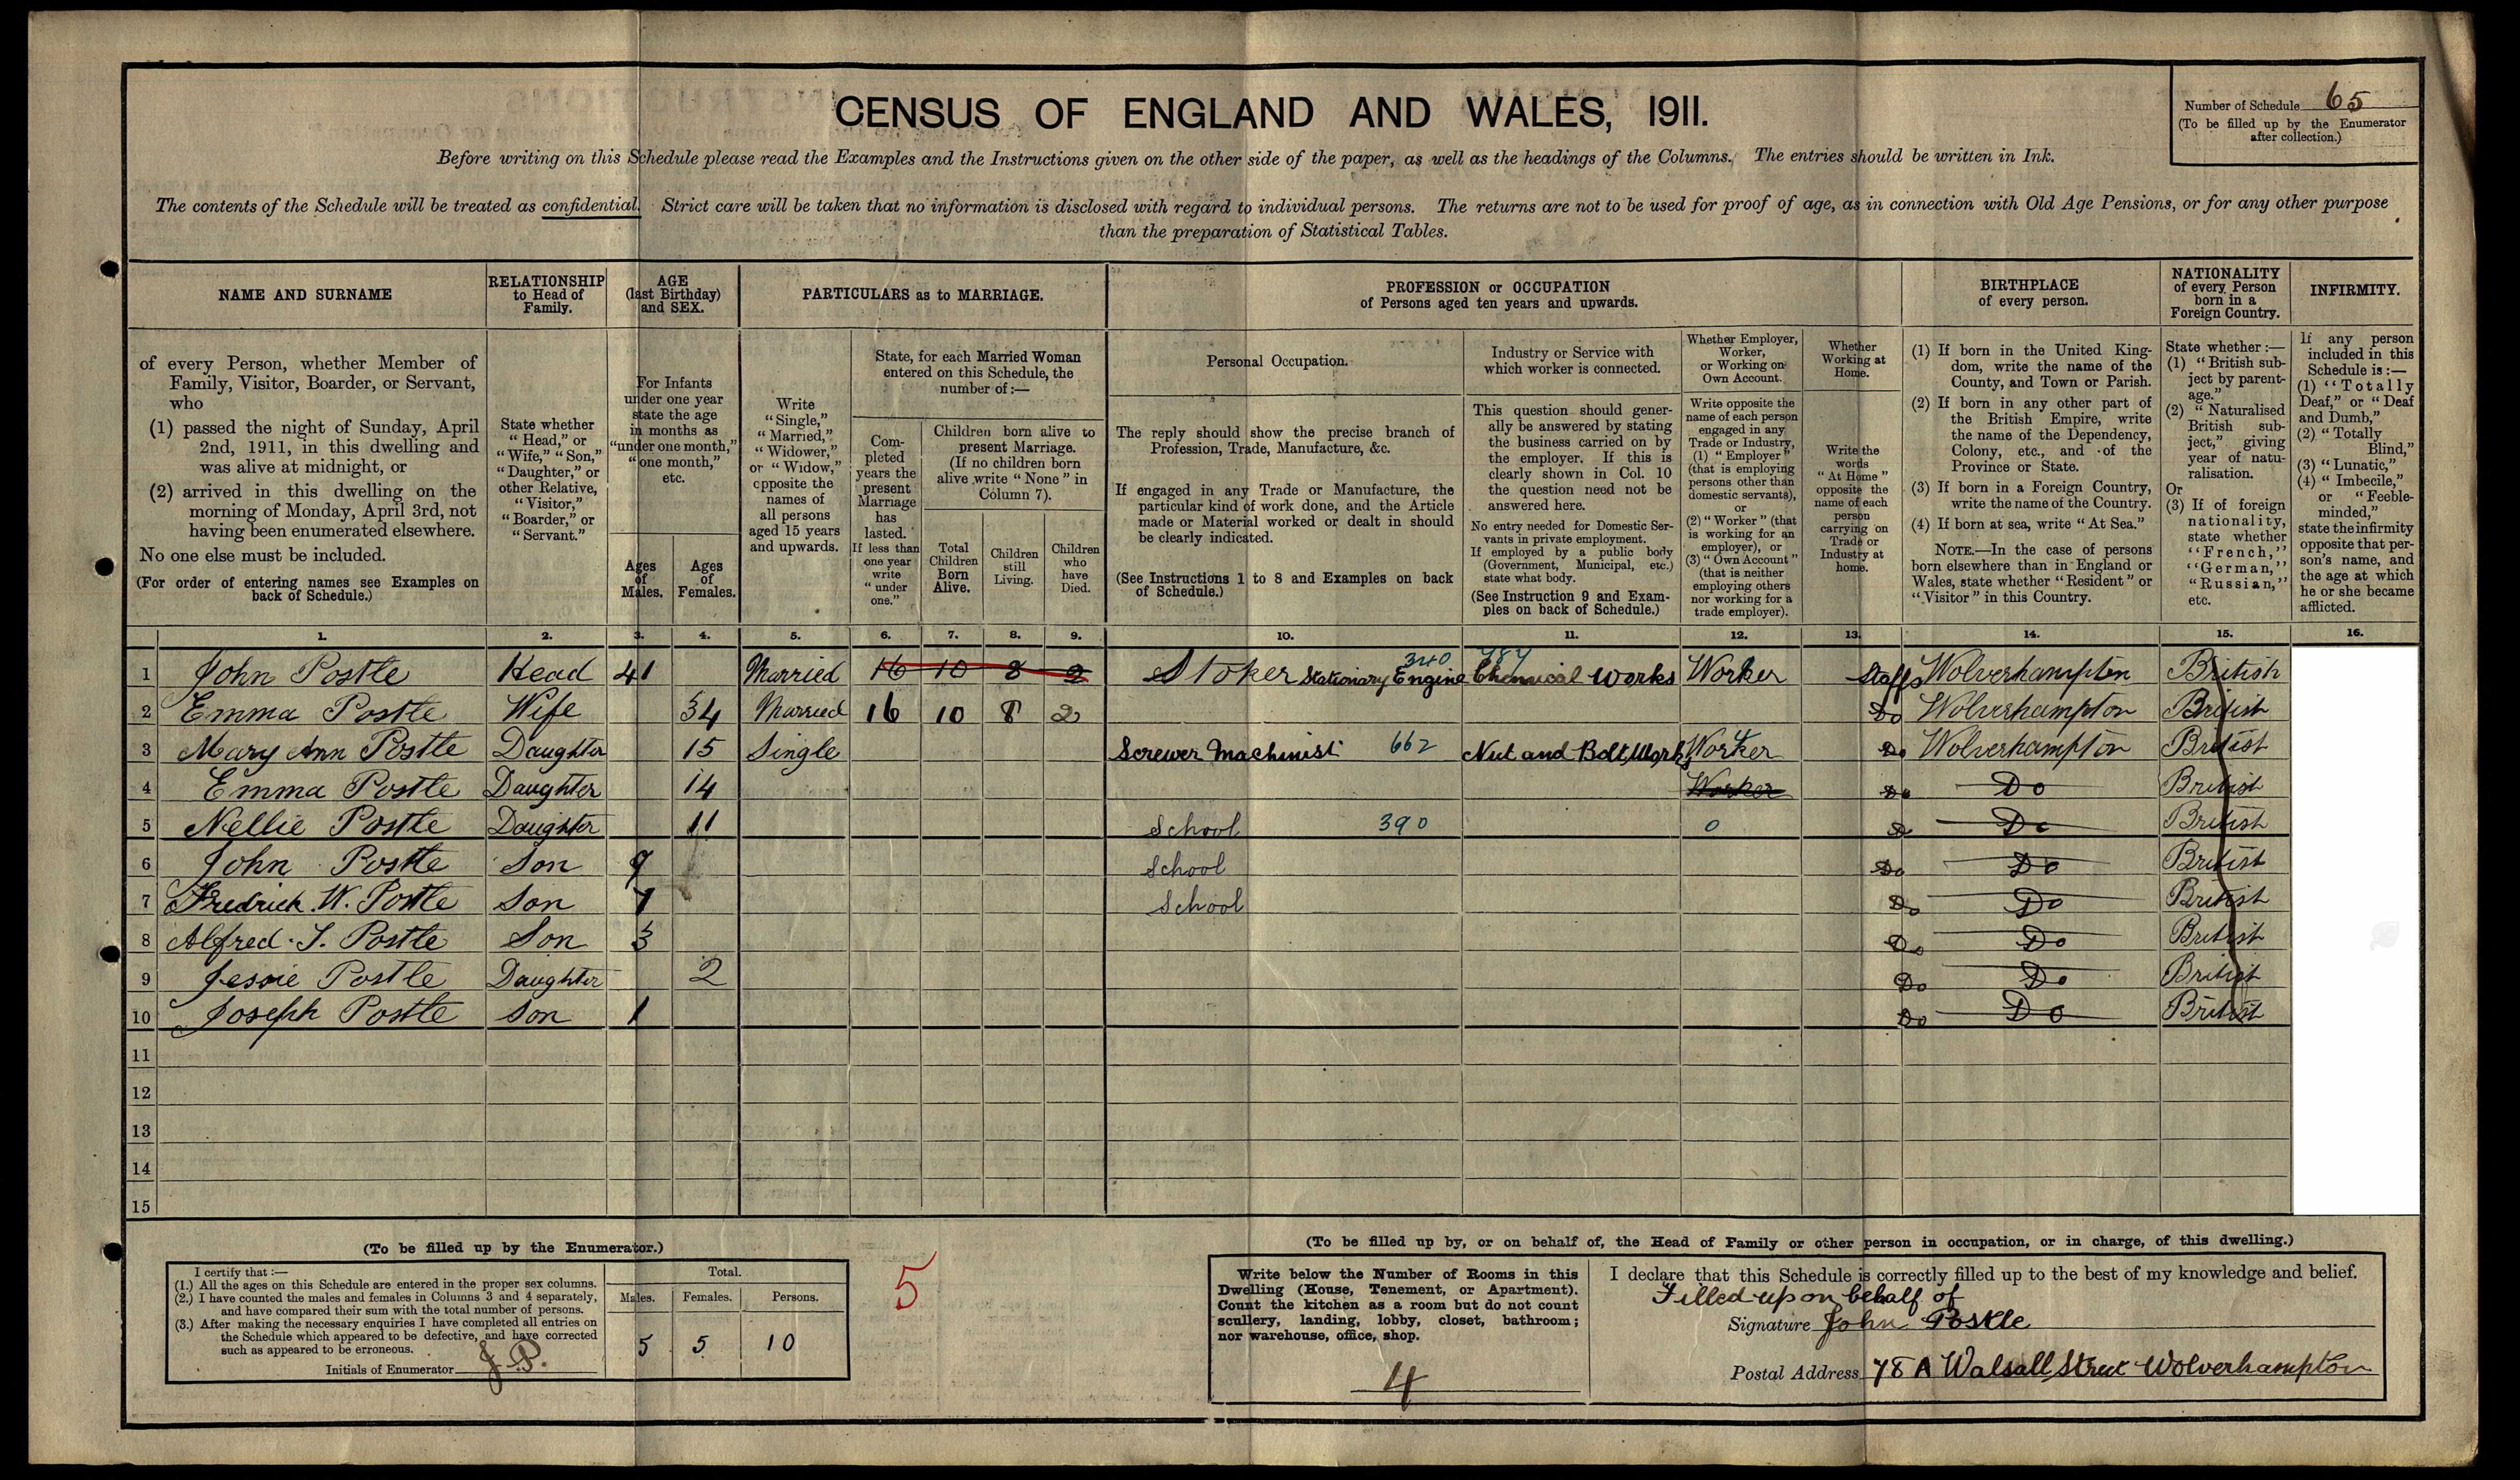 CENSUS OF ENGLAND AND WALES, 1911.
Number of Schedule 65
(To be filled up by the Enumerator
after collection.)
Before writing on this Schedule please read the Examples and the Instructions given on the other side of the paper, as well as the headings of the Columns. The entries should be written in Ink.
The contents of the Schedule will be treated as confidential. Strict care will be taken that no information is disclosed with regard to individual persons. The returns are not to be used for proof of age, as in connection with Old Age Pensions, or for any other purpose
than the preparation of Statistical Tables.
NAME AND SURNAME
of every Person, whether Member of
Family, Visitor, Boarder, or Servant,
who
(1) passed the night of Sunday, April
2nd, 1911, in this dwelling and
was alive at midnight, or
(2) arrived in this dwelling on the
morning of Monday, April 3rd, not
having been enumerated elsewhere.
No one else must be included.
(For order of entering names see Examples on
back of Schedule.)
RELATIONSHIP
to Head of
Family.
State whether
"Head," or
"Wife," "Son,"
"Daughter," or
other Relative,
"Visitor,"
"Boarder," or
"Servant."
AGE
(last Birthday)
and SEX.
For Infants
under one year
state the age
in months as
"under one month,"
"one month,"
etc.
Ages
of
Males.
Ages
of
Females.
PARTICULARS as to MARRIAGE.
Write
"Single,"
"Married,"
"Widower,"
or "Widow,"
opposite the
names of
all persons
aged 15 years
and upwards.
State, for each Married Woman
entered on this Schedule, the
number of:—
Com-
pleted
years the
present
Marriage
has
lasted.
If less than
one year
write
"under
one."
Children born alive to
present Marriage.
(If no children born
alive write "None" in
Column 7).
Total
Children
Born
Alive.
Children
still
Living.
Children
who
have
Died.
PROFESSION or OCCUPATION
of Persons aged ten years and upwards.
Personal Occupation.
The reply should show the precise branch of
Profession, Trade, Manufacture, &c.
If engaged in any Trade or Manufacture, the
particular kind of work done, and the Article
made or Material worked or dealt in should
be clearly indicated.
(See Instructions 1 to 8 and Examples on back
of Schedule.)
Industry or Service with
which worker is connected.
This question should gener-
ally be answered by stating
the business carried on by
the employer. If this is
clearly shown in Col. 10
the question need not be
answered here.
No entry needed for Domestic Ser-
vants in private employment.
If employed by a public body
(Government, Municipal, etc.)
state what body.
(See Instruction 9 and Exam-
ples on back of Schedule.)
Whether Employer,
Worker,
or Working on
Own Account.
Write opposite the
name of each person
engaged in any
Trade or Industry,
(1) "Employer"
(that is employing
persons other than
domestic servants),
or
(2) "Worker" (that
is working for an
employer), or
(3) "Own Account"
(that is neither
employing others
nor working for a
trade employer).
Whether
Working at
Home.
Write the
words
"At Home"
opposite the
name of each
person
carrying on
Trade or
Industry at
home.
BIRTHPLACE
of every person.
(1) If born in the United King-
dom, write the name of the
County, and Town or Parish.
(2) If born in any other part of
the British Empire, write
the name of the Dependency,
Colony, etc., and of the
Province or State.
(3) If born in a Foreign Country,
write the name of the Country.
(4) If born at sea, write "At Sea."
NOTE.—In the case of persons
born elsewhere than in England or
Wales, state whether "Resident" or
"Visitor" in this Country.
NATIONALITY
of every Person
born in a
Foreign Country.
State whether:—
(1) "British sub-
ject by parent-
age."
(2) "Naturalised
British sub-
ject," giving
year of natu-
ralisation.
Or
(3) If of foreign
nationality,
state whether
"French,"
"German,"
"Russian,"
etc.
INFIRMITY.
If any person
included in this
Schedule is:—
(1) "Totally
Deaf," or "Deaf
and Dumb,"
(2) "Totally
Blind,"
(3) "Lunatic,"
(4) "Imbecile,"
or "Feeble-
minded,"
state the infirmity
opposite that per-
son's name, and
the age at which
he or she became
afflicted.
1. 2. 3. 4. 5. 6. 7. 8. 9. 10. 11. 12. 13. 14. 15. 16.
1 John Postle Head 41 Married 16 10 8 2 Stoker Stationary Engine 340 Chemical Works Worker Staffs Wolverhampton British
2 Emma Postle Wife 34 Married 16 10 8 2 Do Wolverhampton British
3 Mary Ann Postle Daughter 15 Single Screwer Machinist 662 Nut and Bolt Works Worker Do Wolverhampton British
4 Emma Postle Daughter 14 Worker Do Do British
5 Nellie Postle Daughter 11 School 390 0 Do Do British
6 John Postle Son 9 School Do Do British
7 Fredrick W. Postle Son 7 School Do Do British
8 Alfred. J. Postle Son 3 Do Do British
9 Jessie Postle Daughter 2 Do Do British
10 Joseph Postle Son 1 Do Do British
11
12
13
14
15
(To be filled up by the Enumerator.)
I certify that:—
(1.) All the ages on this Schedule are entered in the proper sex columns.
(2.) I have counted the males and females in Columns 3 and 4 separately,
and have compared their sum with the total number of persons.
(3.) After making the necessary enquiries I have completed all entries on
the Schedule which appeared to be defective, and have corrected
such as appeared to be erroneous.
Initials of Enumerator J. P.
Total.
Males. Females. Persons.
5 5 10
5
(To be filled up by, or on behalf of, the Head of Family or other person in occupation, or in charge, of this dwelling.)
Write below the Number of Rooms in this
Dwelling (House, Tenement, or Apartment).
Count the kitchen as a room but do not count
scullery, landing, lobby, closet, bathroom;
nor warehouse, office, shop.
4
I declare that this Schedule is correctly filled up to the best of my knowledge and belief.
Filled up on behalf of
Signature John Postle
Postal Address 78 A Walsall Street Wolverhampton